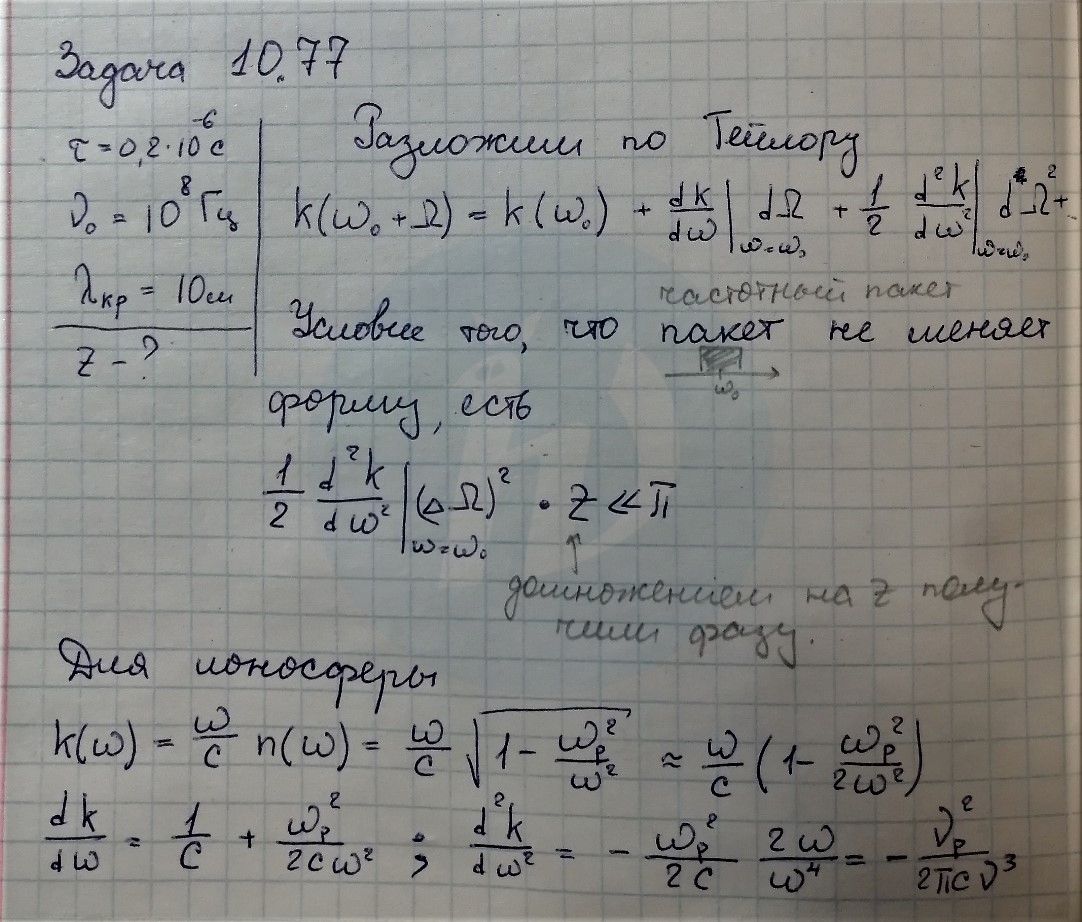 Задача 10.77
τ = 0,2·10⁻⁶ с
ν₀ = 10⁸ Гц
λкр = 10 см
z - ?
Разложим по Тейлору
k(ω₀ + Ω) = k(ω₀) + dk/dω|ω=ω₀ dΩ + 1/2 d²k/dω²|ω=ω₀ dΩ² + .
частотный пакет
Условие того, что пакет не меняет
ω₀
форму, есть
1/2 d²k/dω²|ω=ω₀ (ΔΩ)² · z ≪ π
домножением на z полу-
чили фазу.
Для ионосферы
k(ω) = ω/c n(ω) = ω/c √(1 - ωₚ²/ω²) ≈ ω/c (1 - ωₚ²/2ω²)
dk/dω = 1/c + ωₚ²/2cω² ; d²k/dω² = - ωₚ²/2c 2ω/ω⁴ = - νₚ²/2πcν³